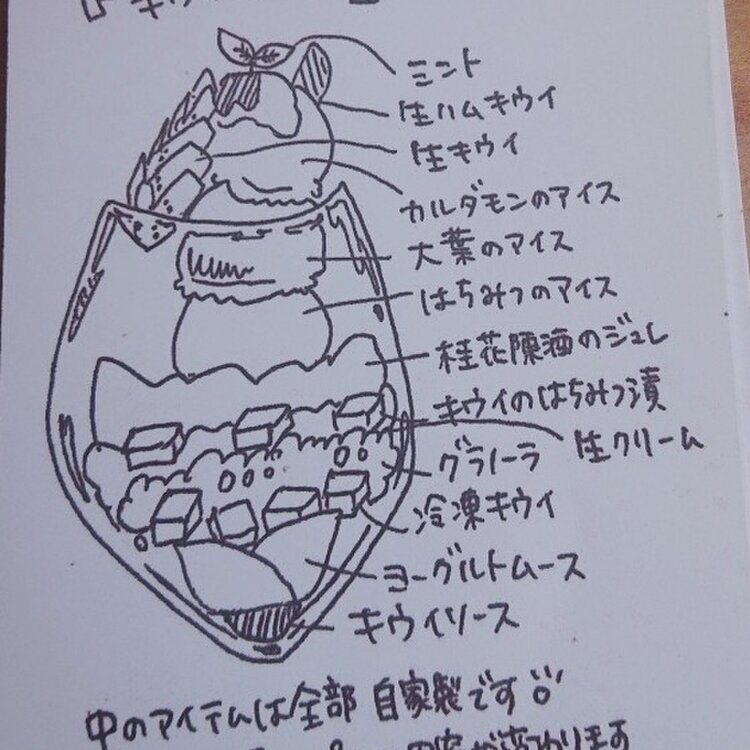 ミント
生ハムキウイ
生キウイ
カルダモンのアイス
大葉のアイス
はちみつのアイス
桂花陳酒のジュレ
キウイのはちみつ漬
生クリーム
グラノーラ
冷凍キウイ
ヨーグルトムース
キウイソース
中のアイテムは全部 自家製です